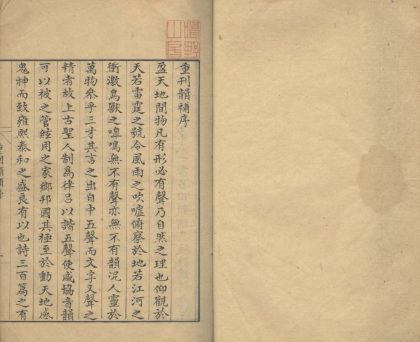 重刊韻補序
盈天地間物凡有形必有聲乃自然之理也仰觀於
天若雷霆之號令風雨之吹噓俯察於地若江河之
衝激鳥獸之嘷鳴無不有聲亦無不有韻況人靈於
萬物參乎三才其言之出自中五聲而文字又聲之
精者故上古聖人制爲律呂以諧五聲使咸協音韻
可以被之管絃用之家鄉邦國其極至於動天地感
鬼神而致雍熙泰和之盛良有以也詩三百篇之有